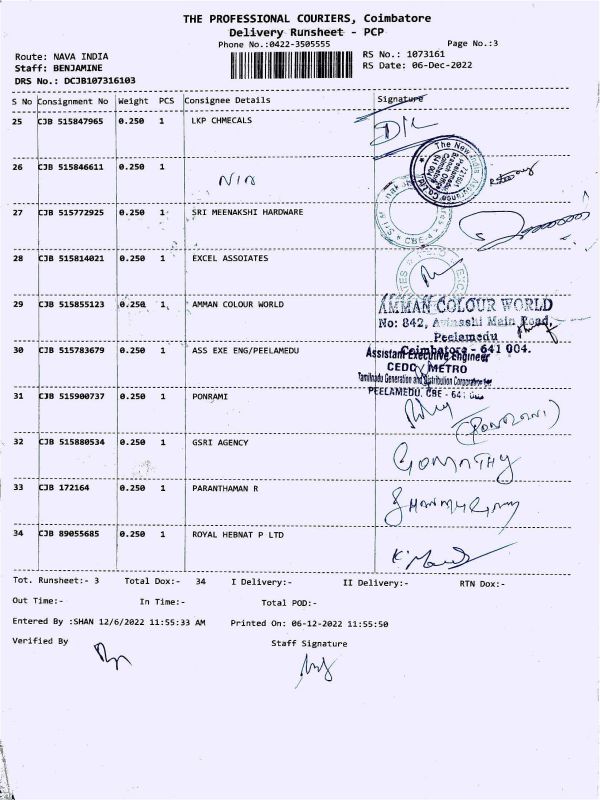 THE PROFESSIONAL COURIERS, Coimbatore
Delivery Runsheet - PCP
Phone No.:0422-3505555
Page No.:3
Route: NAVA INDIA
Staff: BENJAMINE
DRS No.: DCJB107316103
RS No.: 1073161
RS Date: 06-Dec-2022
S No Consignment No Weight PCS Consignee Details Signature
25 CJB 515847965 0.250 1 LKP CHMECALS
26 CJB 515846611 0.250 1
NIA
The New India Assurance Co. Ltd.
27 CJB 515772925 0.250 1 SRI MEENAKSHI HARDWARE
CBE-4
28 CJB 515814021 0.250 1 EXCEL ASSOIATES
29 CJB 515855123 0.250 1 AMMAN COLOUR WORLD
AMMAN COLOUR WORLD
No: 842, Avinashi Main Road,
Peelamedu
Coimbatore - 641 004.
30 CJB 515783679 0.250 1 ASS EXE ENG/PEELAMEDU
Assistant Executive Engineer
CEDC / METRO
Tamilnadu Generation and Distribution Corporation
PEELAMEDU, CBE - 641
31 CJB 515900737 0.250 1 PONRAMI
(PONRANI)
32 CJB 515880534 0.250 1 GSRI AGENCY
GOMATHY
33 CJB 172164 0.250 1 PARANTHAMAN R
34 CJB 89055685 0.250 1 ROYAL HEBNAT P LTD
Tot. Runsheet:- 3 Total Dox:- 34 I Delivery:- II Delivery:- RTN Dox:-
Out Time:- In Time:- Total POD:-
Entered By :SHAN 12/6/2022 11:55:33 AM Printed On: 06-12-2022 11:55:50
Verified By Staff Signature